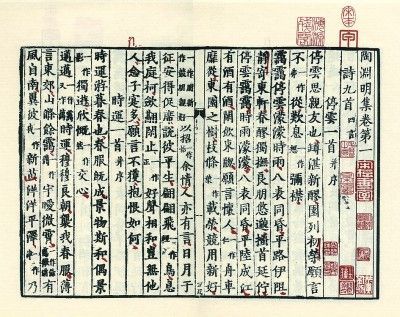 陶淵明集卷第一
詩九首 四言
停雲一首 并序
停雲思親友也罇湛新醪園列初榮願言
不從歎息彌襟
靄靄停雲濛濛時雨八表同昏平路伊阻
靜寄東軒春醪獨撫良朋悠邈搔首延佇
停雲靄靄時雨濛濛八表同昏平陸成江
有酒有酒閑飲東窻願言懷人舟車
靡從東園之樹枝條載榮競用新好
以招余情人亦有言日月于
征安得促席說彼平生翩翩飛鳥息
我庭柯斂翮閑止好聲相和豈無他
人念子寔多願言不獲抱恨如何
時運一首 并序
時運游暮春也春服既成景物斯和偶景
獨遊欣慨交心
邁邁時運穆穆良朝襲我春服薄
言東郊山滌餘靄宇曖微霄有
風自南翼彼新苗洋洋平澤